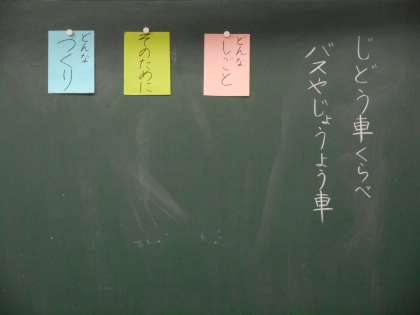 じどう車くらべ
バスやじょうよう車
どんな
しごと
そのために
どんな
つくり